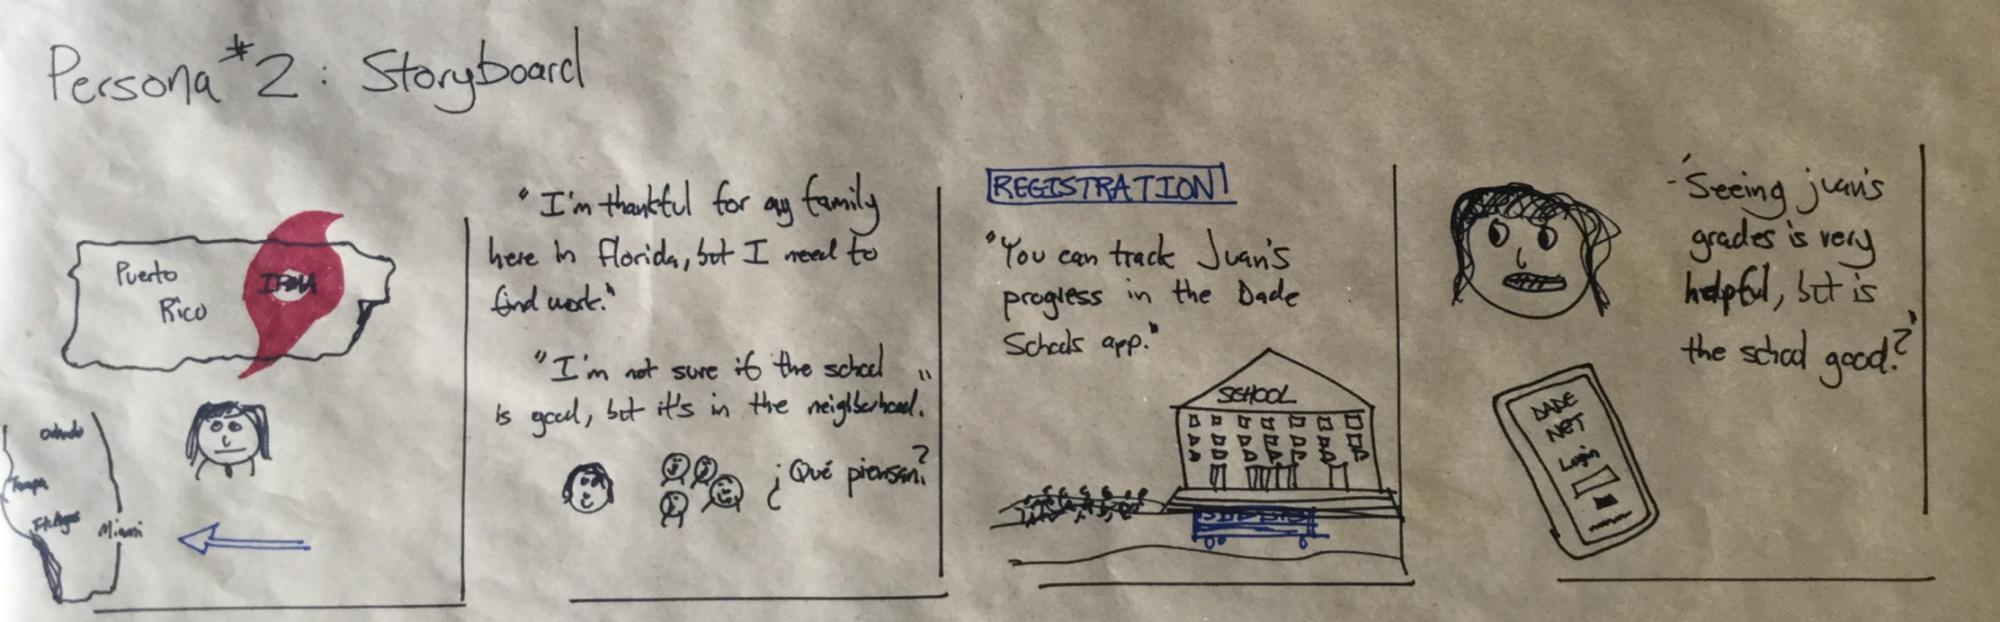 Persona #2: Storyboard
Puerto
Rico
IRMA
Orlando
Tampa
Ft. Myers
Miami
"I'm thankful for my family
here in Florida, but I need to
find work."
"I'm not sure if the school
is good, but it's in the neighborhood."
¿Qué piensan?
REGISTRATION
"You can track Juan's
progress in the Dade
Schools app."
SCHOOL
"Seeing juan's
grades is very
helpful, but is
the school good?"
DADE
NET
Login